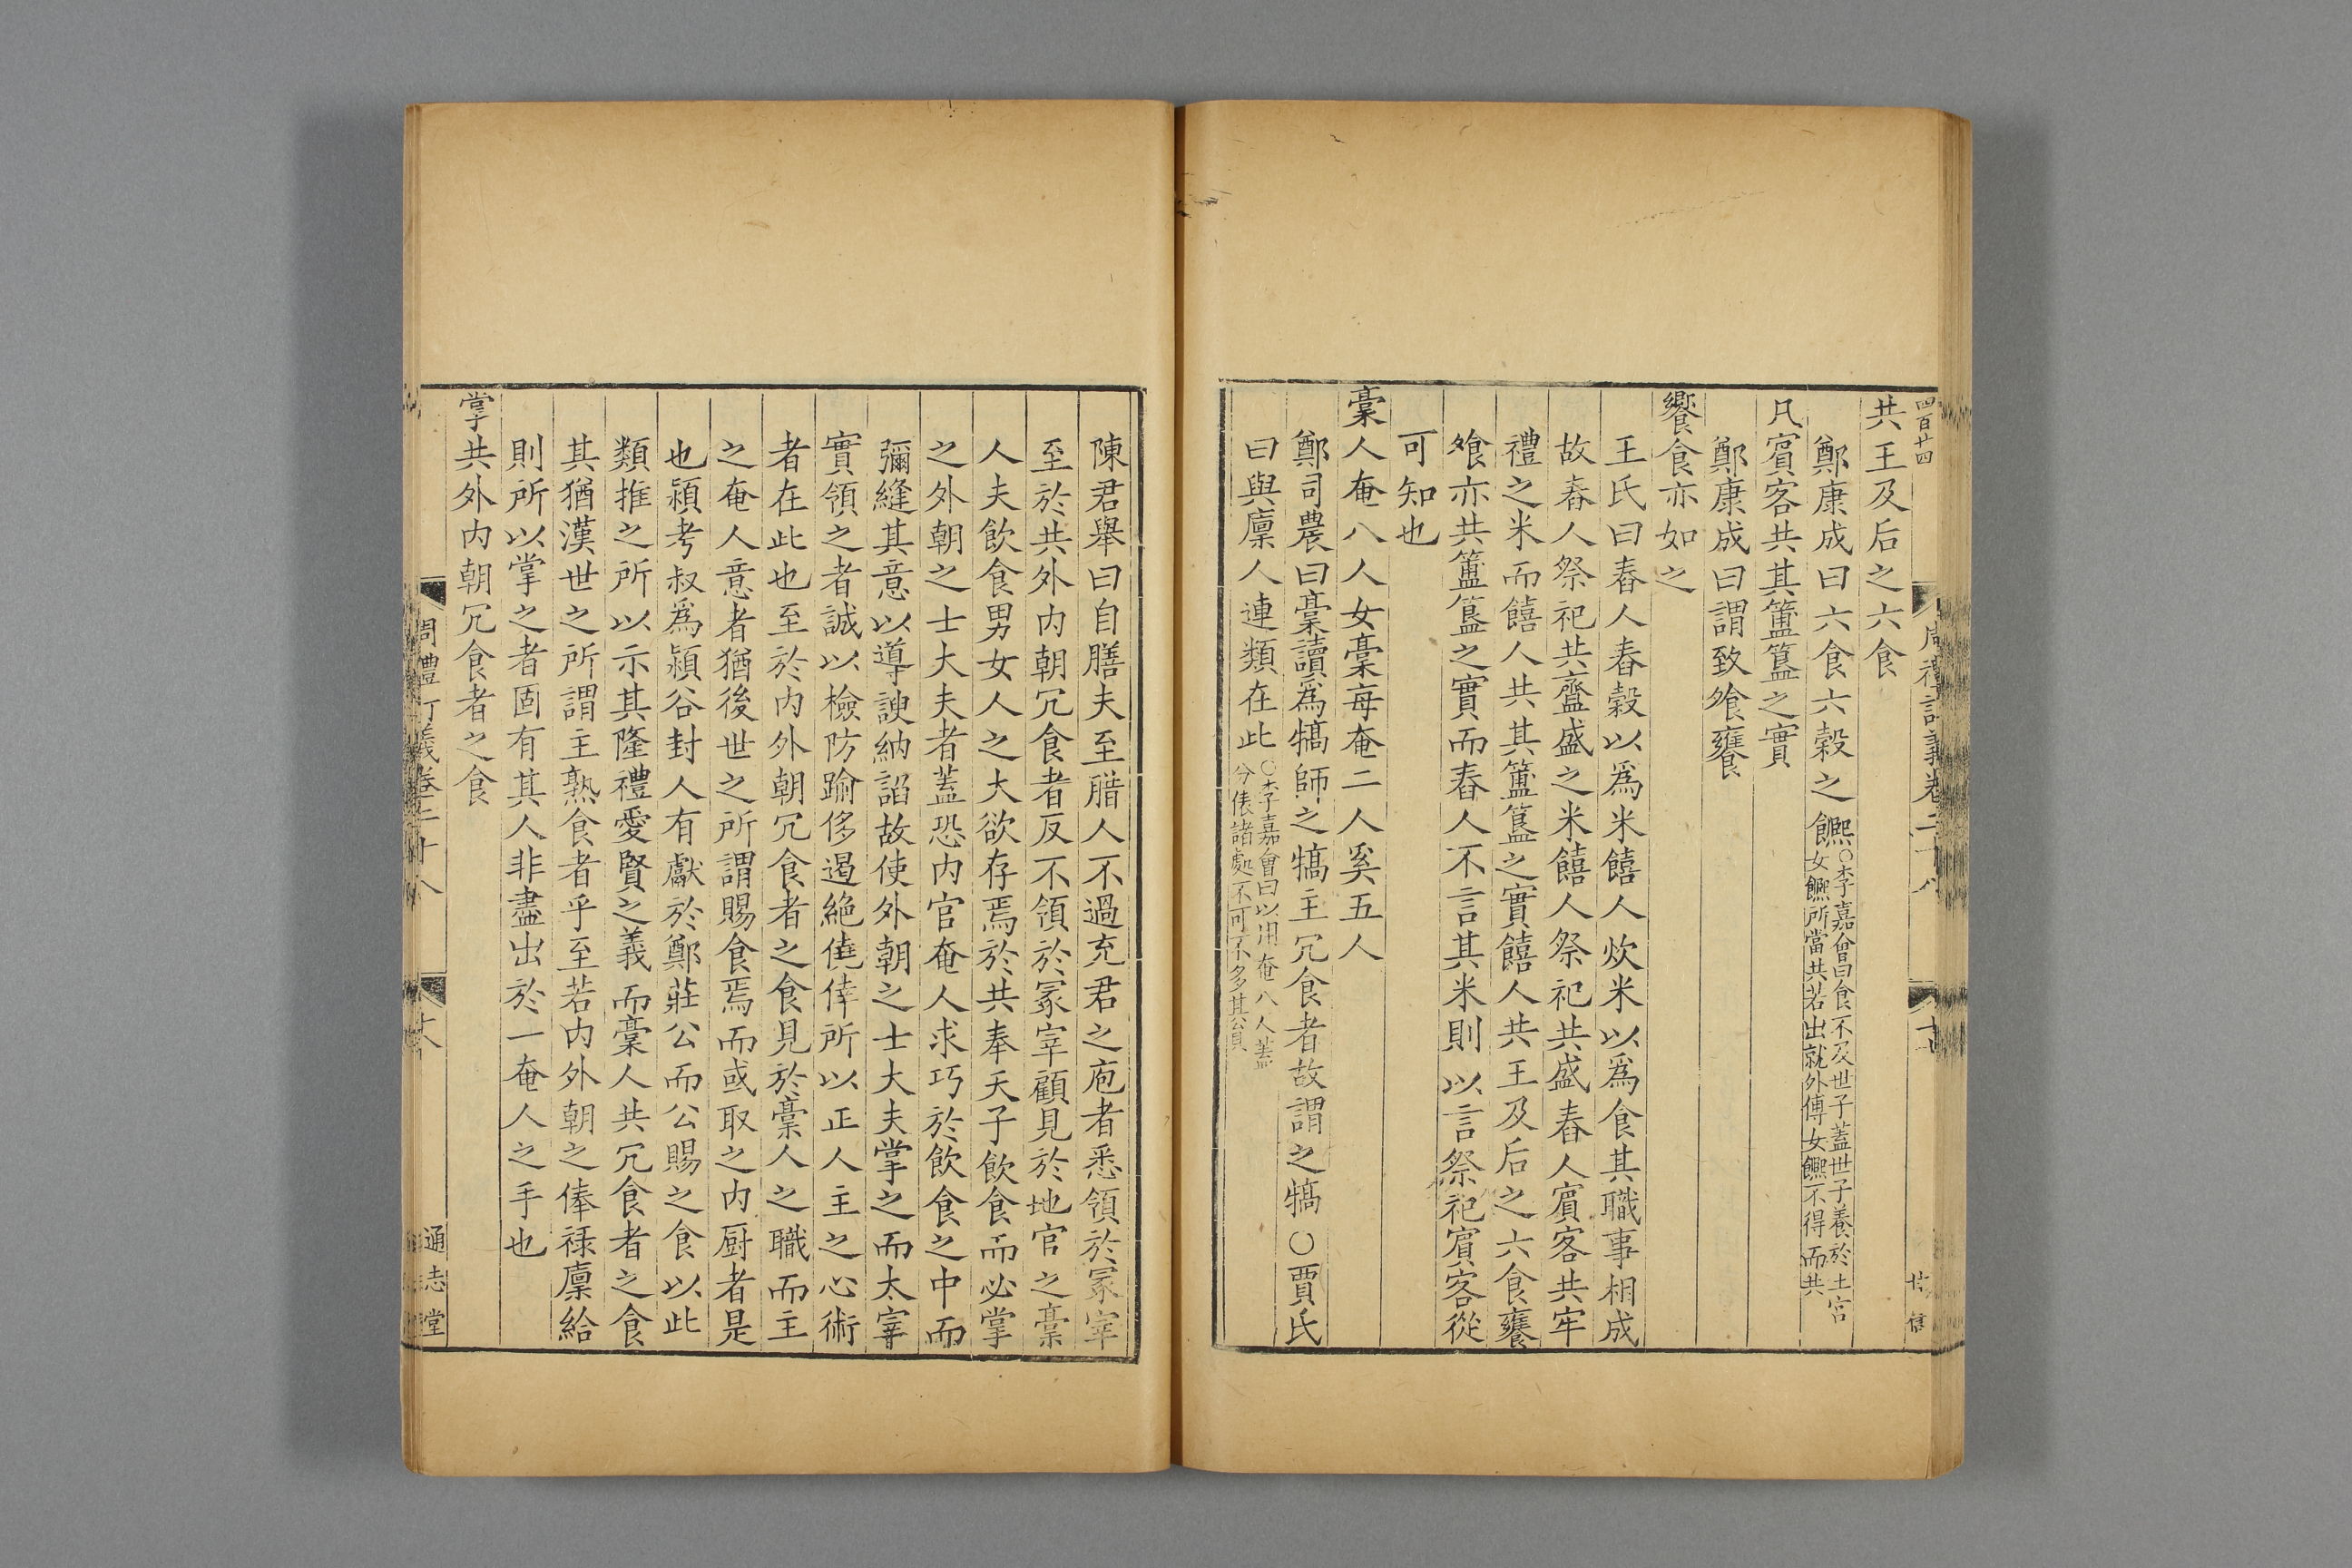 四百廿四
共王及后之六食
鄭康成曰六食六穀之䊠○李嘉會曰食不及世子蓋世子養於士宮
女䊠所當共若出就外傅女䊠不得而共
凡賓客共其簠簋之實
鄭康成曰謂致飧饔
饗食亦如之
王氏曰舂人舂穀以爲米饎人炊米以爲食其職事相成
故舂人祭祀共齍盛之米饎人祭祀共盛舂人賓客共牢
禮之米而饎人共其簠簋之實饎人共王及后之六食饔
飧亦共簠簋之實而舂人不言其米則以言祭祀賓客從
可知也
稾人奄八人女稾每奄二人奚五人
鄭司農曰稾讀爲犒師之犒主冗食者故謂之犒○賈氏
曰與廩人連類在此○李嘉會曰以用奄八人蓋
分俵諸處不可不多其員
陳君舉曰自膳夫至腊人不過充君之庖者悉領於冢宰
至於共外内朝冗食者反不領於冢宰顧見於地官之稾
人夫飲食男女人之大欲存焉於共奉天子飲食而必掌
之外朝之士大夫者蓋恐内官奄人求巧於飲食之中而
彌縫其意以導諛納謟故使外朝之士大夫掌之而太宰
實領之者誠以檢防踰侈遏絶僥倖所以正人主之心術
者在此也至於内外朝冗食者之食見於稾人之職而主
之奄人意者猶後世之所謂賜食焉而或取之内厨者是
也潁考叔爲潁谷封人有獻於鄭莊公而公賜之食以此
類推之所以示其隆禮愛賢之義而稾人共冗食者之食
其猶漢世之所謂主熟食者乎至若内外朝之俸禄廩給
則所以掌之者固有其人非盡出於一奄人之手也
掌共外内朝冗食者之食
周禮訂義卷二十八
通志堂